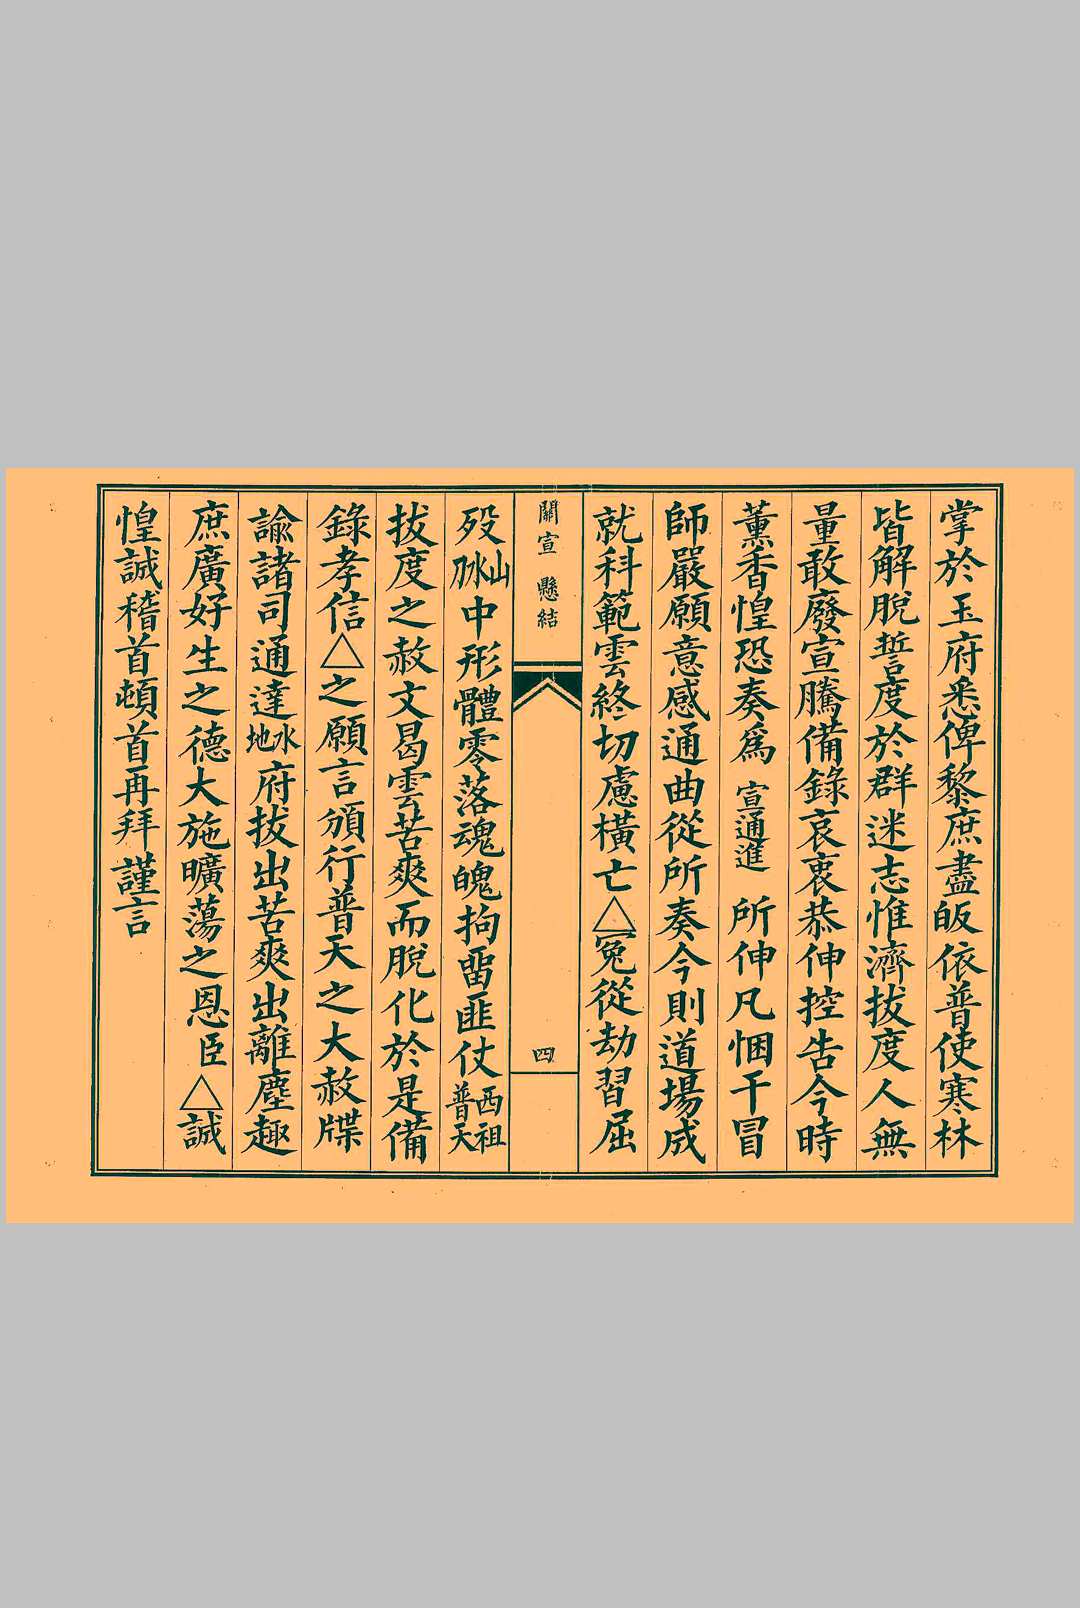 掌於玉府悉俾黎庶盡皈依普使寒林
皆解脫誓度於群迷志惟濟拔度人無
量敢廢宣騰備錄哀衷恭伸控告今時
薰香惶恐奏爲 宣通進 所伸凡悃干冒
師嚴願意感通曲從所奏今則道場成
就科範雲終切慮橫亡△冤從劫習屈
關宣 懸結
四
歿刀水山中形體零落魂魄拘畱匪仗西祖普天
拔度之赦文曷雲苦爽而脫化於是備
錄孝信△之願言頒行普天之大赦牒
諭諸司通達水地府拔出苦爽出離塵趣
庶廣好生之德大施曠蕩之恩臣△誠
惶誠稽首頓首再拜謹言